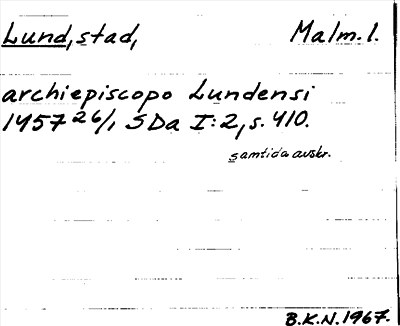 Lund, stad, Malm. l.
archiepiscopo Lundensi
1457 26/1 SDa I:2, s. 410.
samtida avskr.
B.K.N. 1967.